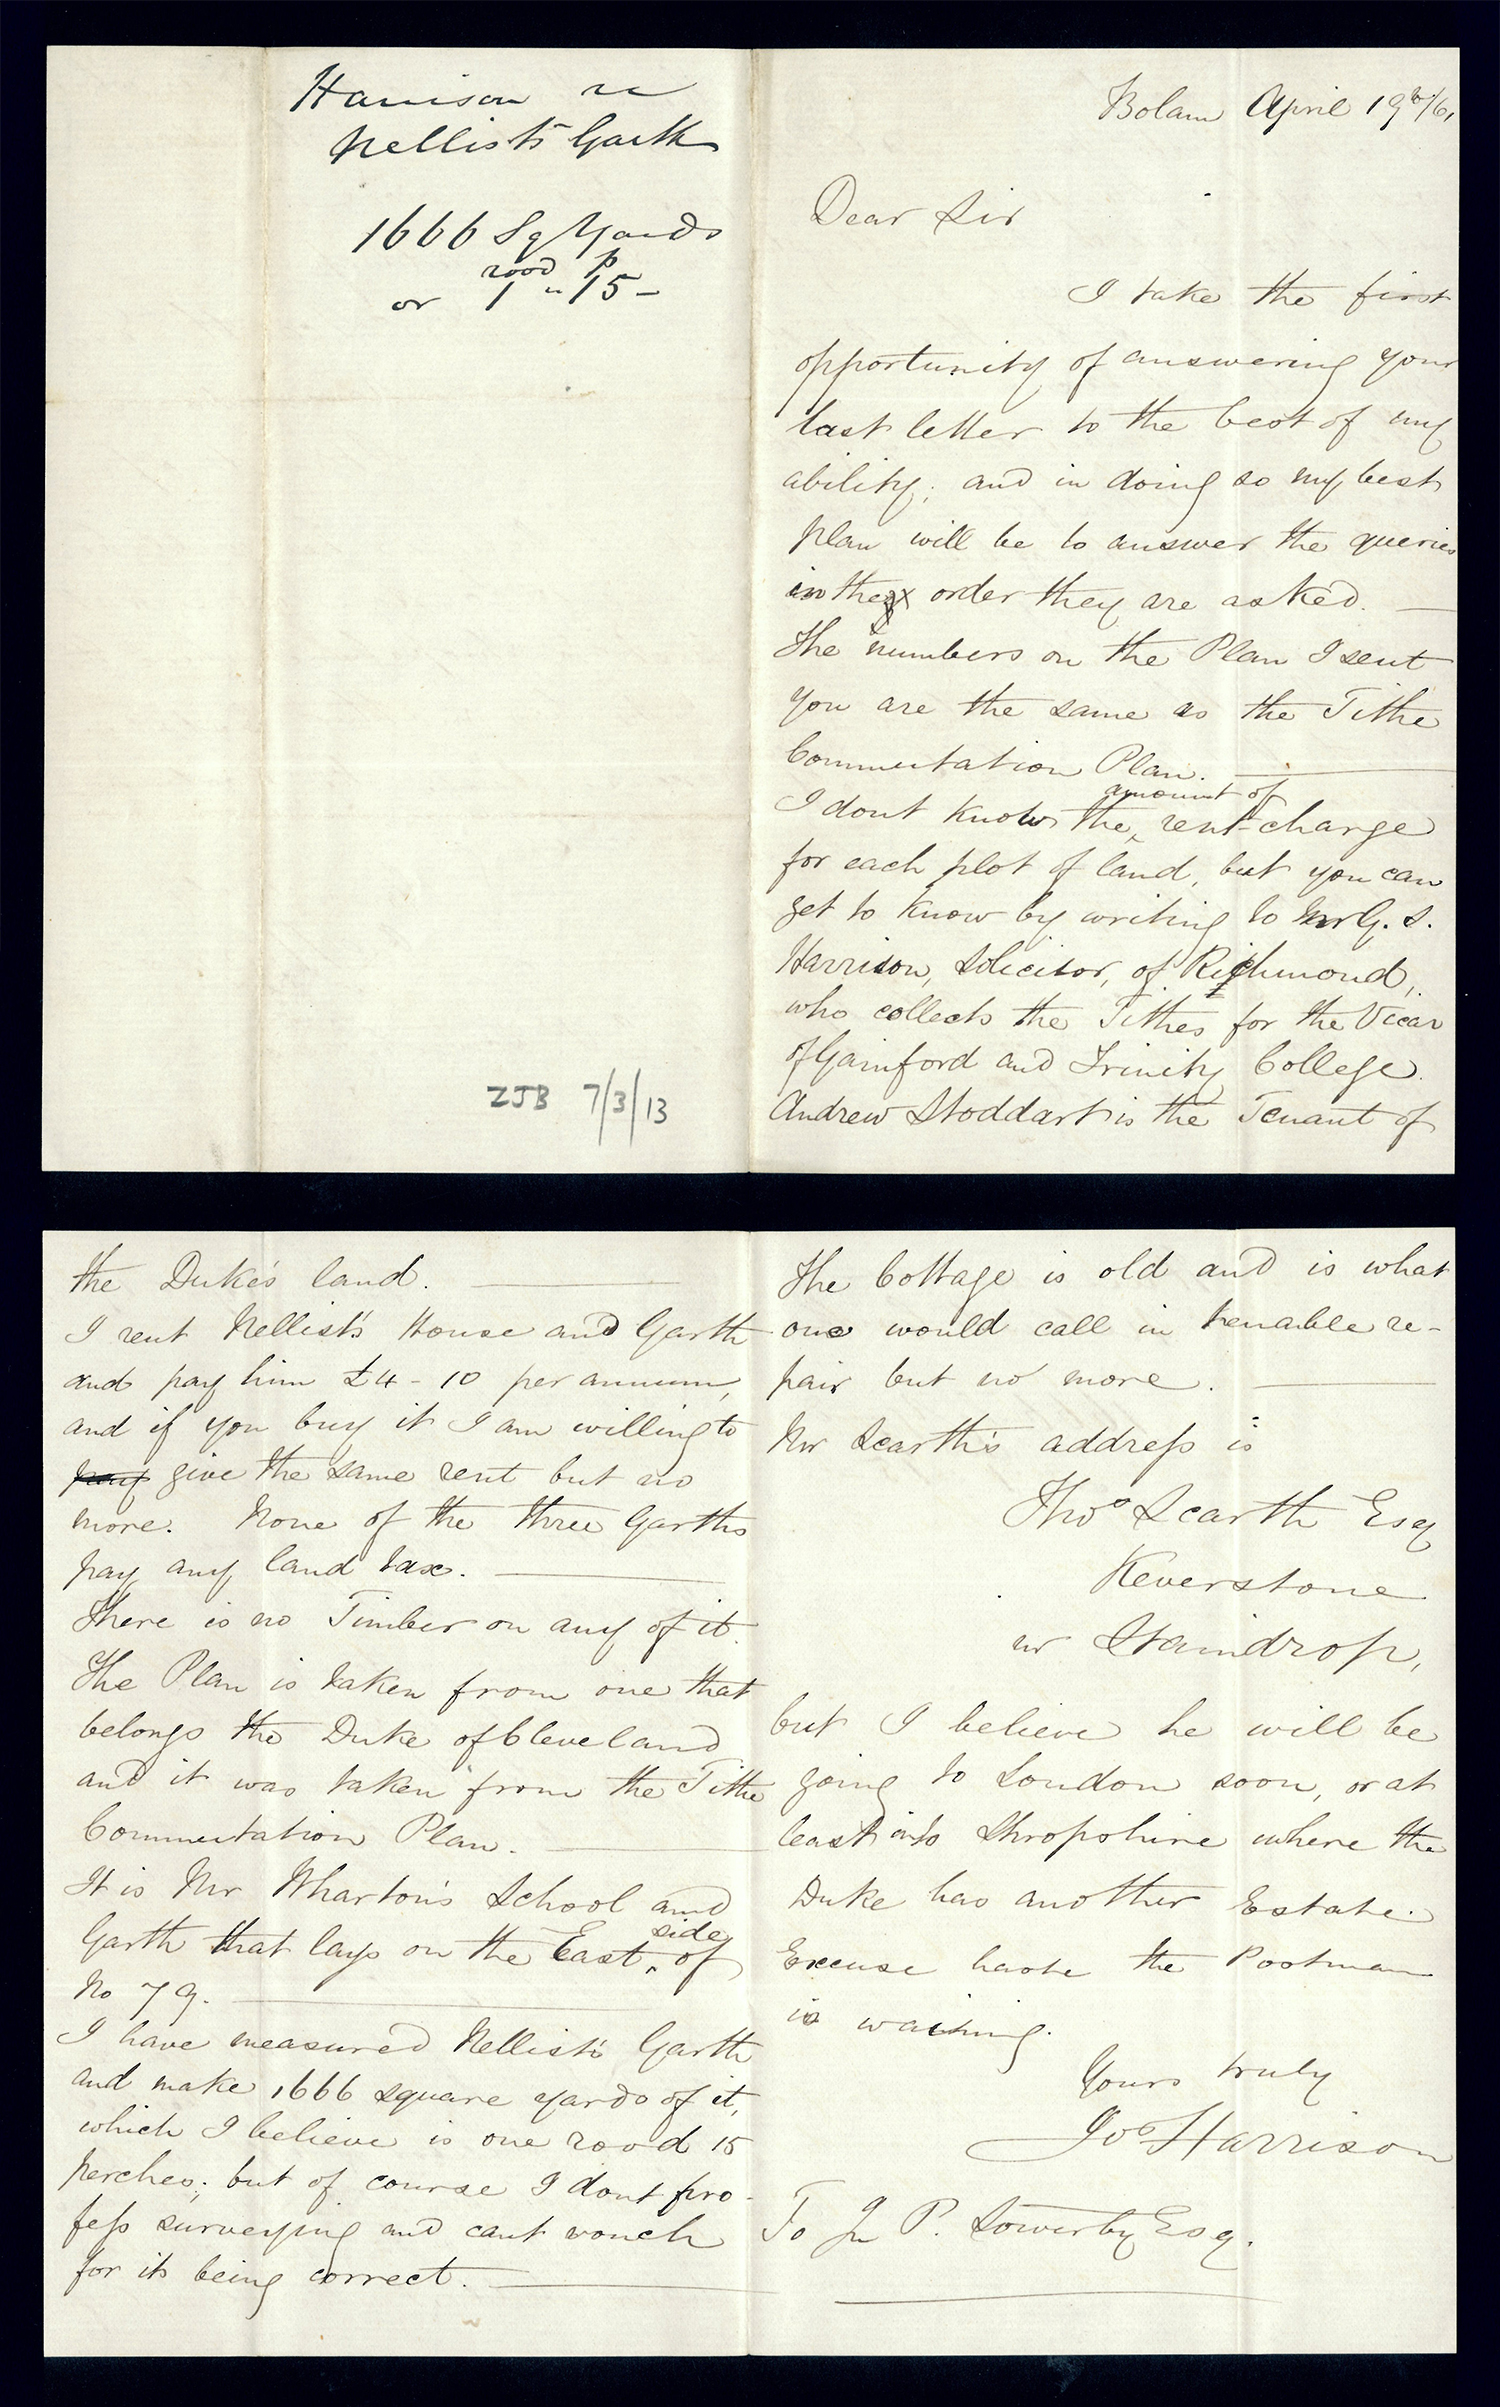 Harrison re
Nellist's Garth
1666 Sq Yards
rood P
or 1 " 15 -
ZJB 7/3/13
Bolam April 19th/61
Dear Sir
I take the first
opportunity of answering your
last letter to the best of my
ability; and in doing so my best
plan will be to answer the queries
in the order they are asked. —
The numbers on the Plan I sent
you are the same as the Tithe
Commutation Plan. —
amount of
I dont know the ‸ rent-charge
for each plot of land, but you can
get to know by writing to Mr G. S.
Harrison, Solicitor, of Richmond,
who collects the Tithes for the Vicar
of Gainford and Trinity College.
Andrew Stoddart is the Tenant of
the Duke's land. —
I rent Nellist's House and Garth
and pay him £4 - 10 per annum,
and if you buy it I am willing to
pay give the same rent but no
more. None of the three Garths
pay any land tax. —
There is no Timber on any of it.
The Plan is taken from one that
belongs the Duke of Cleveland
and it was taken from the Tithe
Commutation Plan. —
It is Mr Wharton's School and
side
Garth that lays on the East ‸ of
No 79. —
I have measured Nellist's Garth
and make 1666 square yards of it,
which I believe is one rood 15
perches; but of course I dont pro-
fess surveying and cant vouch
for its being correct. —
The Cottage is old and is what
one would call in tenable re-
pair but no more. —
Mr Scarth's address is
Thos Scarth Esq
Keverstone
nr Staindrop,
but I believe he will be
going to London soon, or at
least into Shropshire where the
Duke has another Estate.
Excuse haste the Postman
is waiting.
Yours truly
Jos Harrison
To J. P. Sowerby Esq.